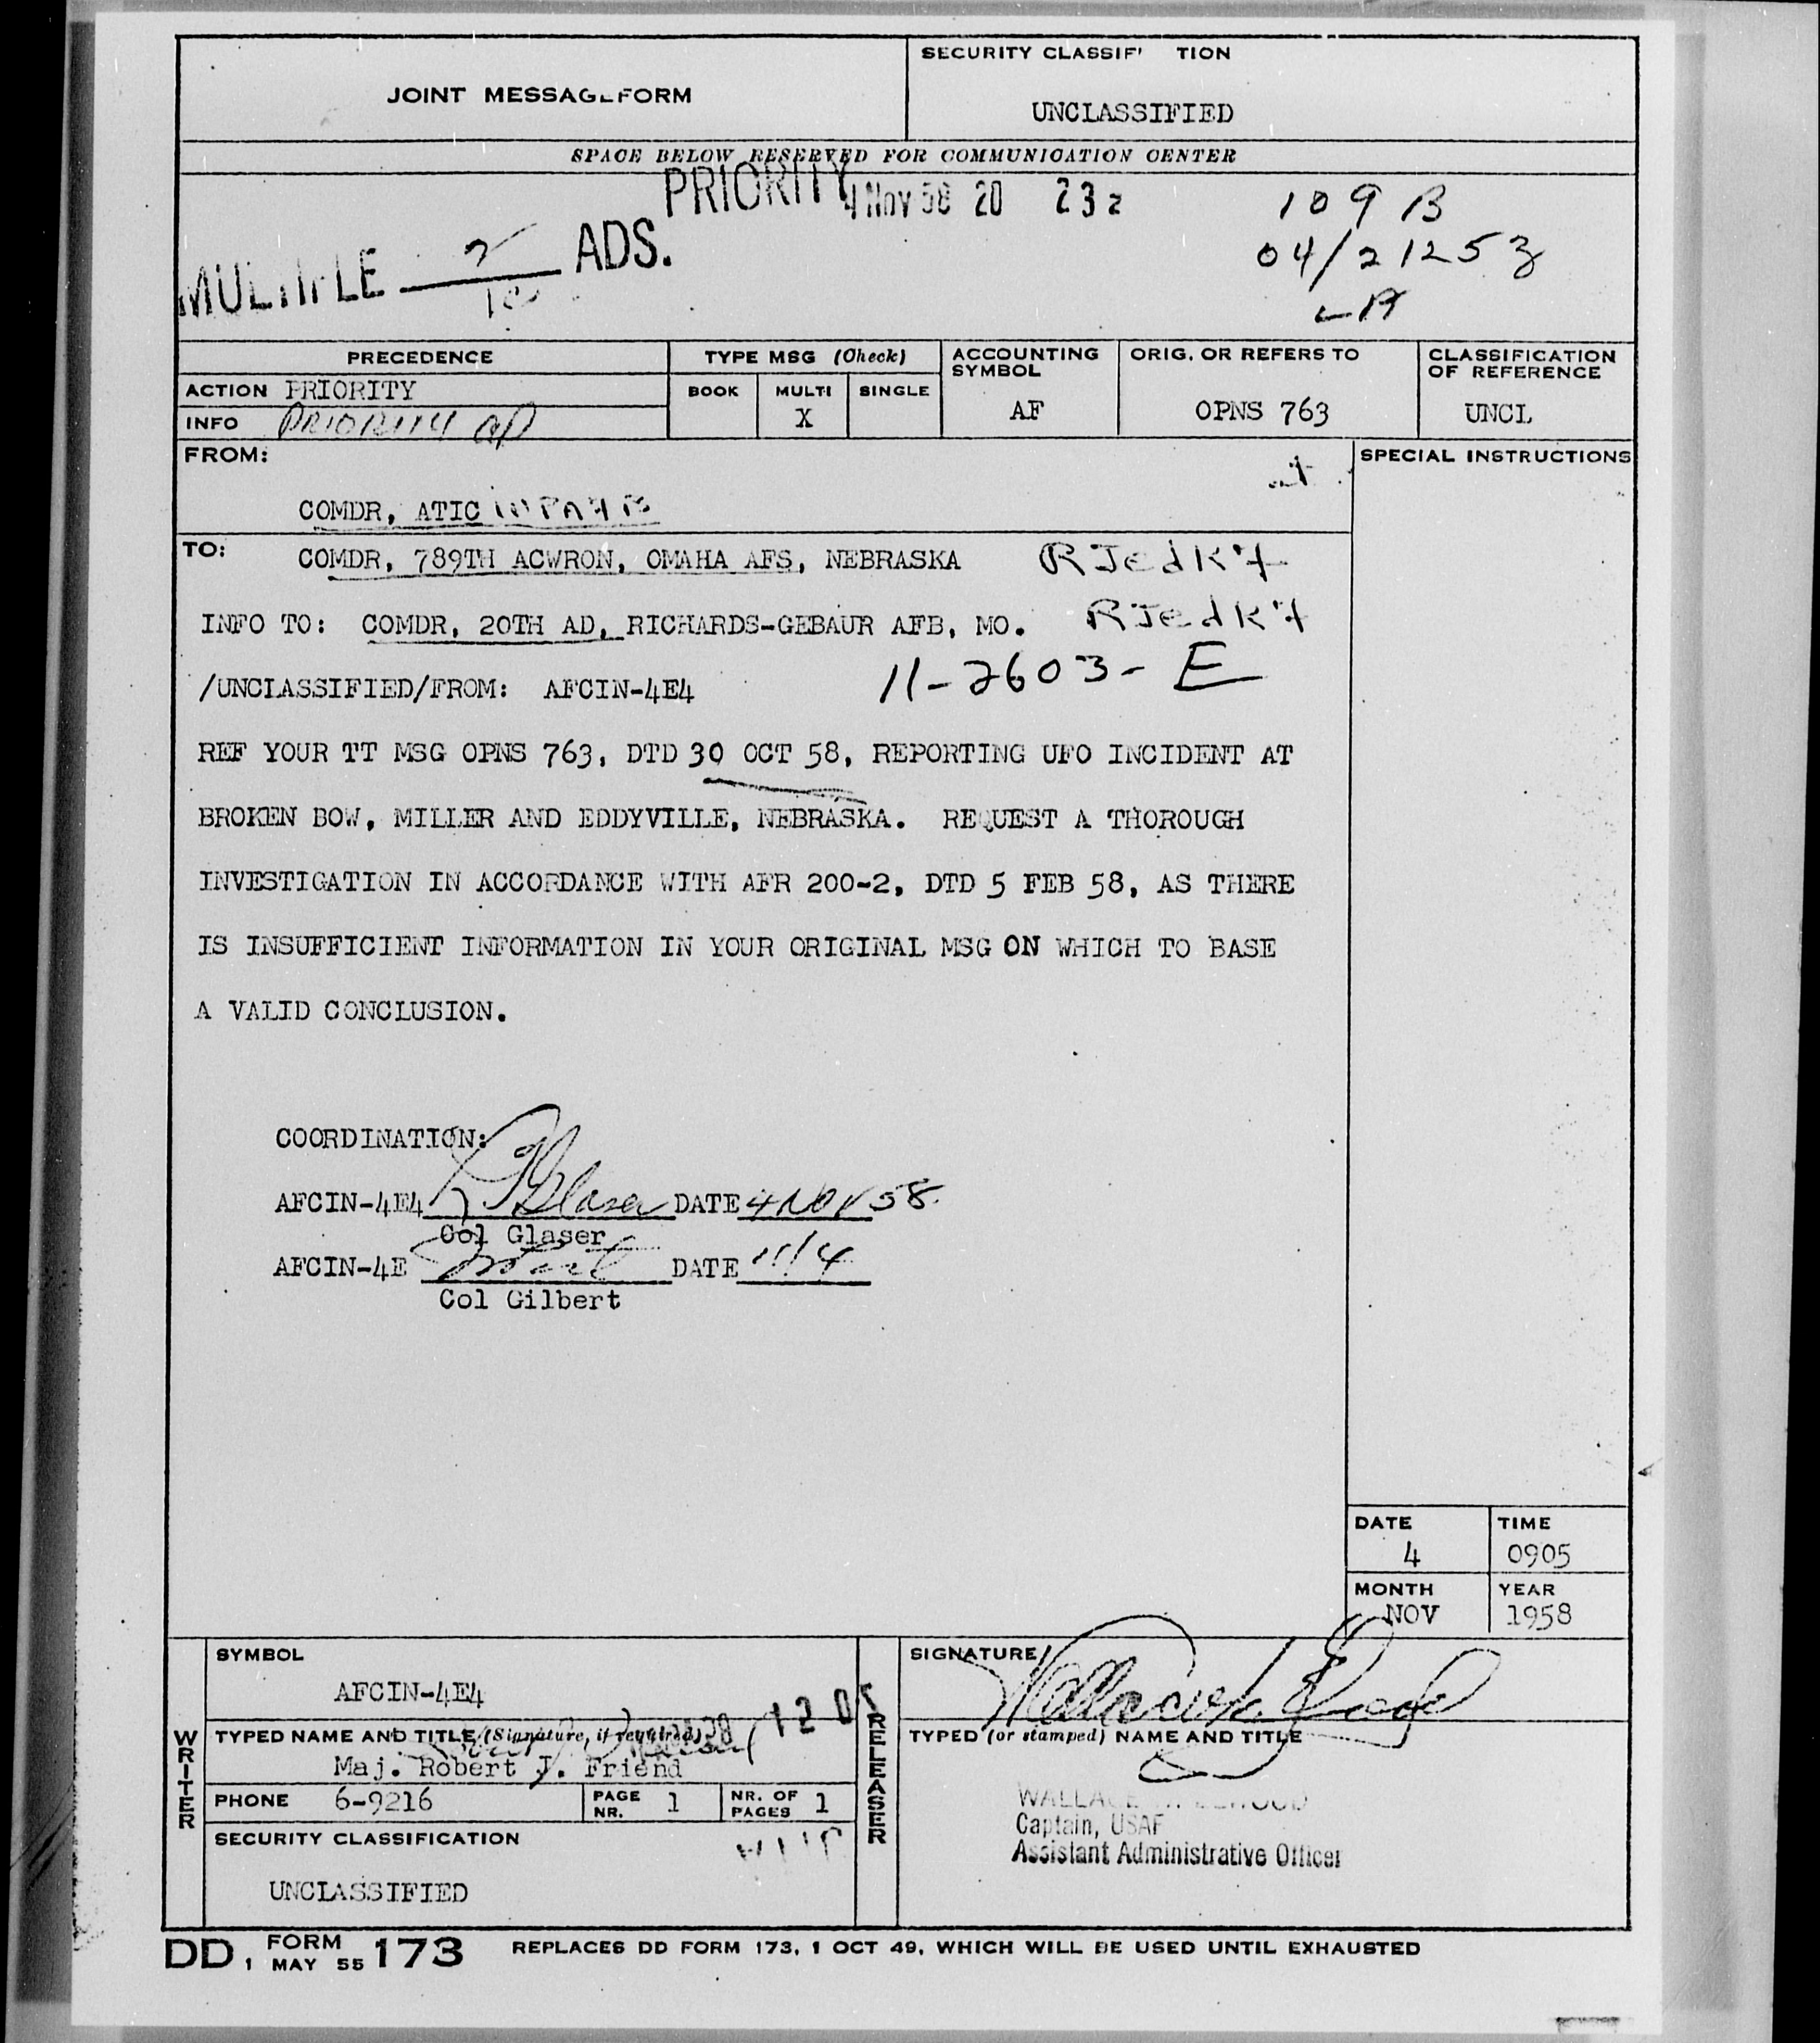 JOINT MESSAGEFORM
SECURITY CLASSIF' TION
UNCLASSIFIED
SPACE BELOW RESERVED FOR COMMUNICATION CENTER
PRIORITY
4 Nov 58 20 23z
109 B
04/2125z
MULTIPLE 2 ADS.
PRECEDENCE
TYPE MSG (Check)
ACCOUNTING SYMBOL
ORIG. OR REFERS TO
CLASSIFICATION OF REFERENCE
ACTION PRIORITY
BOOK
MULTI
SINGLE
X
AF
OPNS 763
UNCL
INFO PRIORITY
FROM:
SPECIAL INSTRUCTIONS
COMDR, ATIC WPAFB
TO: COMDR, 789TH ACWRON, OMAHA AFS, NEBRASKA
INFO TO: COMDR, 20TH AD, RICHARDS-GEBAUR AFB, MO.
/UNCLASSIFIED/FROM: AFCIN-4E4 11-2603-E
REF YOUR TT MSG OPNS 763, DTD 30 OCT 58, REPORTING UFO INCIDENT AT
BROKEN BOW, MILLER AND EDDYVILLE, NEBRASKA. REQUEST A THOROUGH
INVESTIGATION IN ACCORDANCE WITH AFR 200-2, DTD 5 FEB 58, AS THERE
IS INSUFFICIENT INFORMATION IN YOUR ORIGINAL MSG ON WHICH TO BASE
A VALID CONCLUSION.
COORDINATION:
AFCIN-4E4 Glaser DATE 4 NOV 58
Col Glaser
AFCIN-4E DATE 11/4
Col Gilbert
DATE
4
TIME
0905
MONTH
NOV
YEAR
1958
WRITER
SYMBOL
AFCIN-4E4
TYPED NAME AND TITLE (Signature, if required)
Maj. Robert J. Friend
PHONE 6-9216
PAGE NR. 1
NR. OF PAGES 1
SECURITY CLASSIFICATION
UNCLASSIFIED
RELEASER
SIGNATURE
TYPED (or stamped) NAME AND TITLE
Captain, USAF
Assistant Administrative Officer
DD FORM 1 MAY 55 173 REPLACES DD FORM 173, 1 OCT 49, WHICH WILL BE USED UNTIL EXHAUSTED